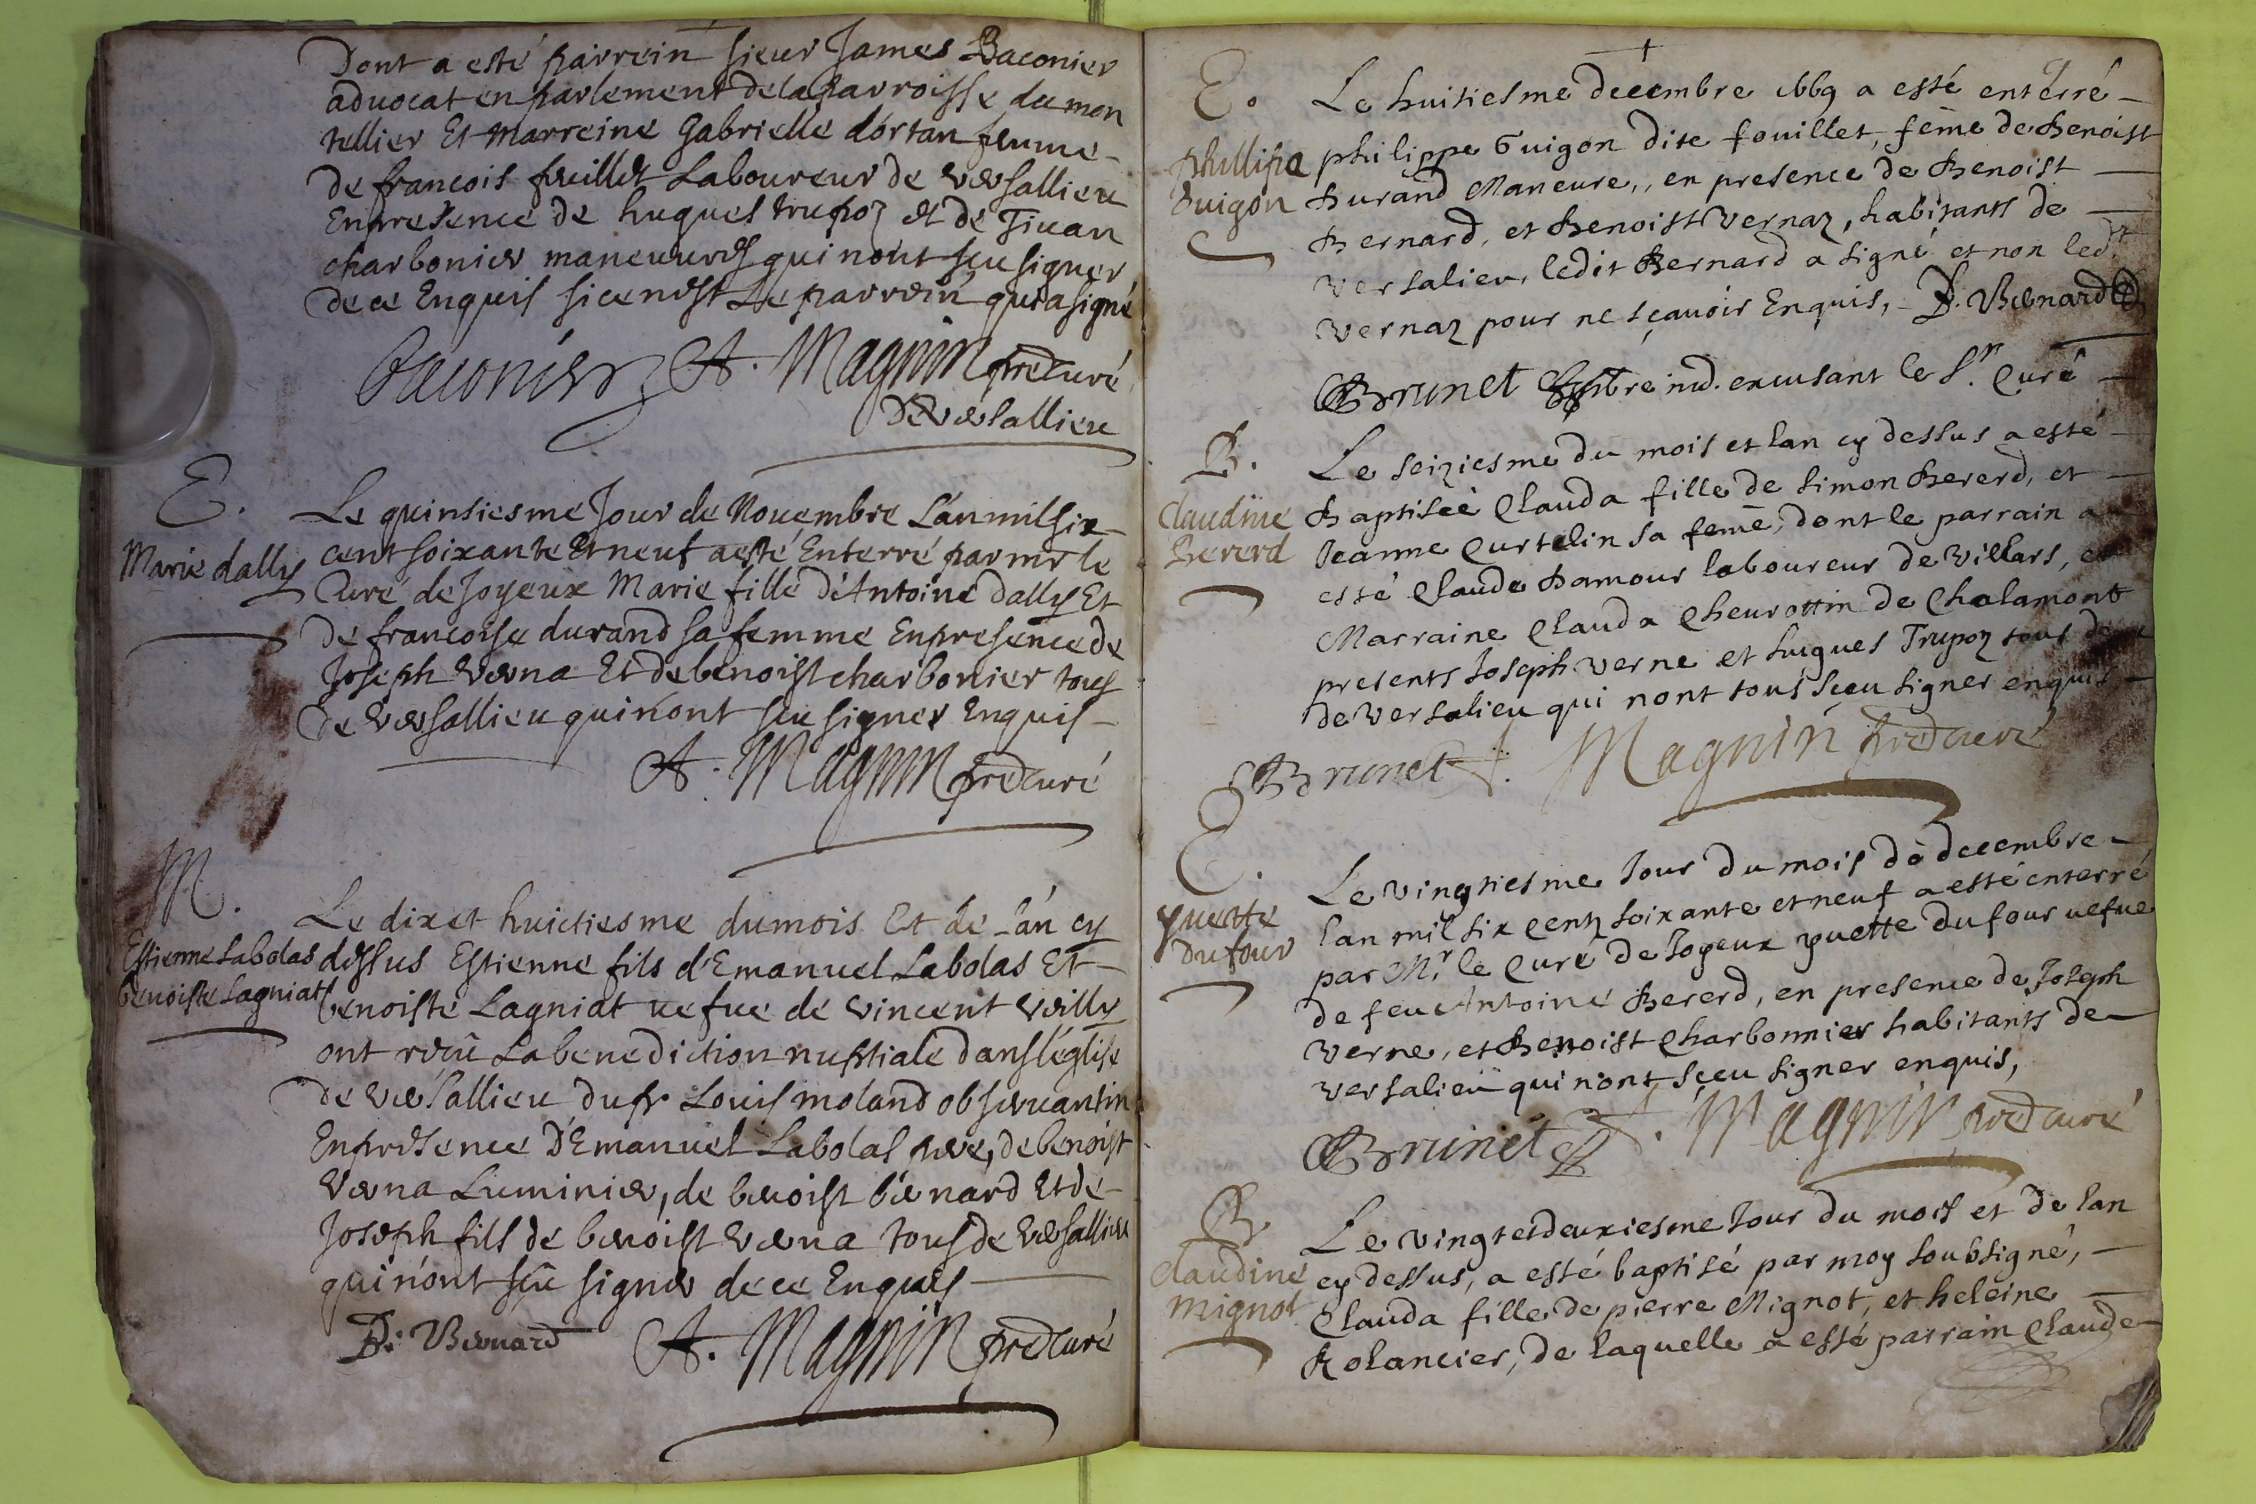 Dont a esté parrein sieur James Baconier
advocat en parlement de la parroisse du mon
tellier Et Marreine Gabrielle dortan femme
de francois feuillet Laboureur de versallieu
Enpresence de hugues trupoz et de
charbonier maneuvres qui nont sceu signer
de ce Enquis si ce nest Le parrein qui a signé
Baconier A. Magnin pre Curé
De versallieu
E.
Marie dally
Le quinsiesme Jour de Novembre Lan mil six
cent soixante Et neuf a esté Enterré par mr le
Curé de Joyeux Marie fille d'Antoine dally Et
de francoise durand sa femme Enpresence de
Joseph verna Et de benoist charbonier tous
De versallieu qui nont sceu signer Enquis
A. Magnin pre Curé
M.
Estienne Labolas
benoiste Lagniat
Le dixet huictiesme dumois Et de Lan cy
dessus Estienne fils d'Emanuel Labolas Et
benoiste Lagniat vefue de vincent
ont recû La benediction nuptiale dans l'église
de versallieu du fr Louis moland observantin
Enpresence D'Emanuel Labolas pere, de benoist
verna Luminier, de benoist bernard Et de
Joseph fils de benoist verna tous de versallieu
qui nont sceu signer de ce Enquis
B. Bernard A. Magnin pre Curé
E.
phillipe
Guigon
Le huitiesme decembre 1669 a esté enterré
philippe Guigon dite fouillet, feme de Benoist
Durand Maneure,, en presence de Benoist
Bernard, et Benoist Vernaz, habitants de
Versalieu, ledit Bernard a signé et non ledt
vernaz pour ne sçavoir Enquis, B. Bernard
Brunet excusant le Sr. Curé
B.
Claudine
Bererd
Le seiziesme du mois et lan cy dessus a esté
Baptisée Clauda fille de simon Bererd, et
Jeanne Curtelin sa feme, dont le parrain a
esté Claude Damour laboureur de Villars, et
Marraine Clauda Cheurottin de Chalamont
presents Joseph verne et hugues Trupoz tous
de Versalieu qui nont tous sceu signer enquis
Brunet A. Magnin pre curé
E.
yuette
Dufour
Le vingtiesme Jour du mois de decembre
lan mil six centz soixante et neuf a esté enterré
par Mr. le Curé de Joyeux yuette du four vefue
de feu Antoine Bererd, en presence de Joseph
Verne, et Benoist Charbonnier habitants de
versalieu qui nont sçeu signer enquis,
Brunet A. Magnin pre curé
B.
Claudine
mignot
Le vingtetdeuxiesme Jour du mois et de lan
cy dessus, a esté baptisé par moy soubsigné,
Clauda fille de pierre Mignot, et heleine
Rolancier, de laquelle a esté parrain Claude